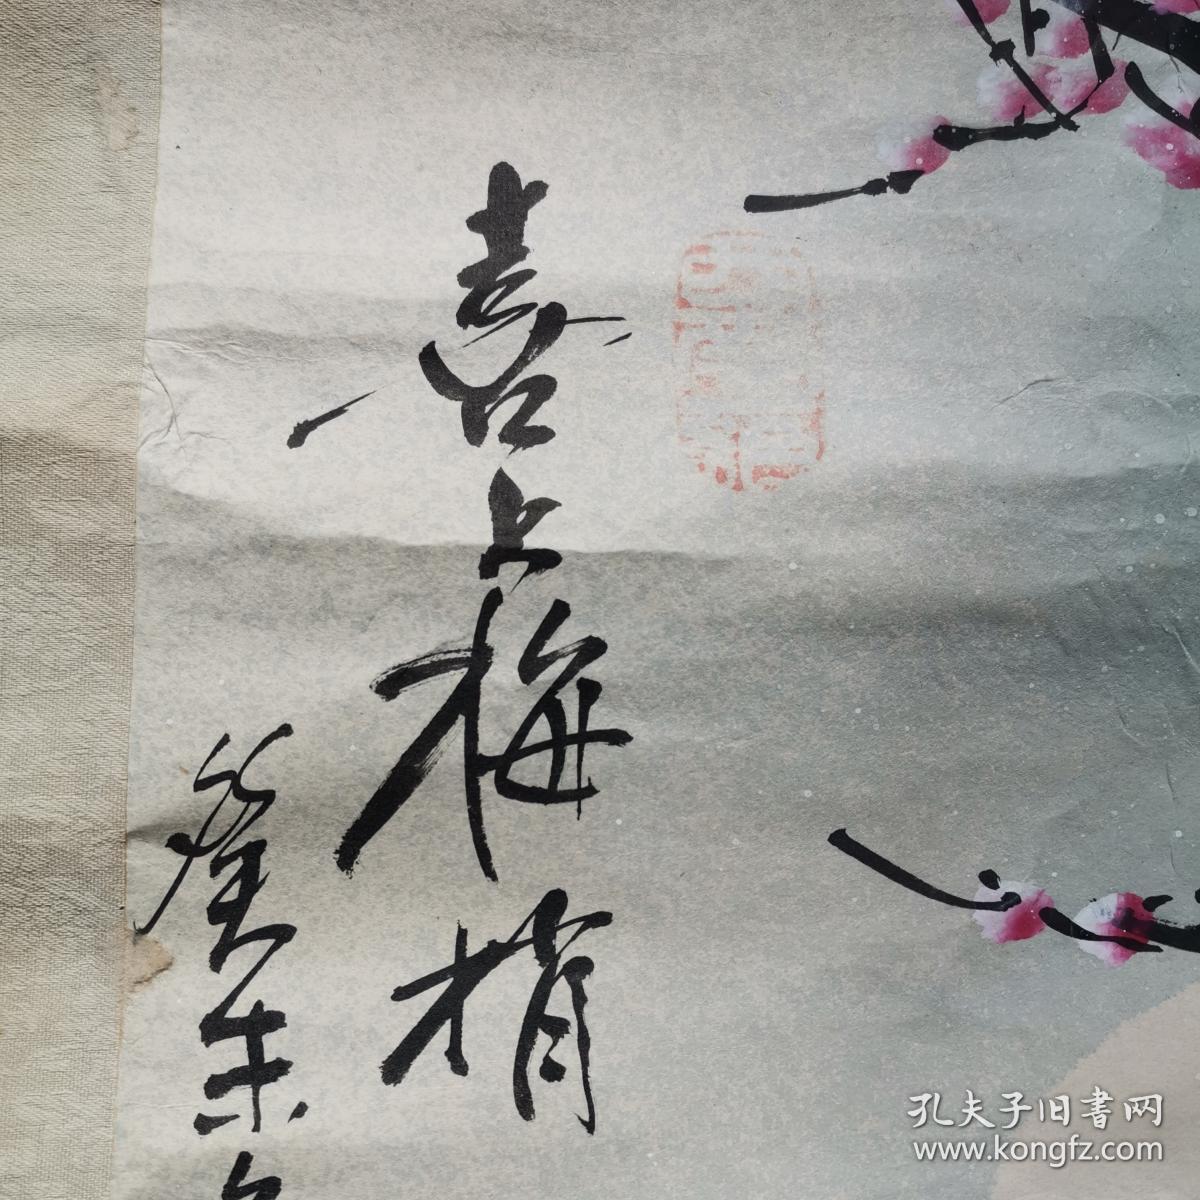 喜上梅梢
癸未
孔夫子旧書网
www.kongfz.com